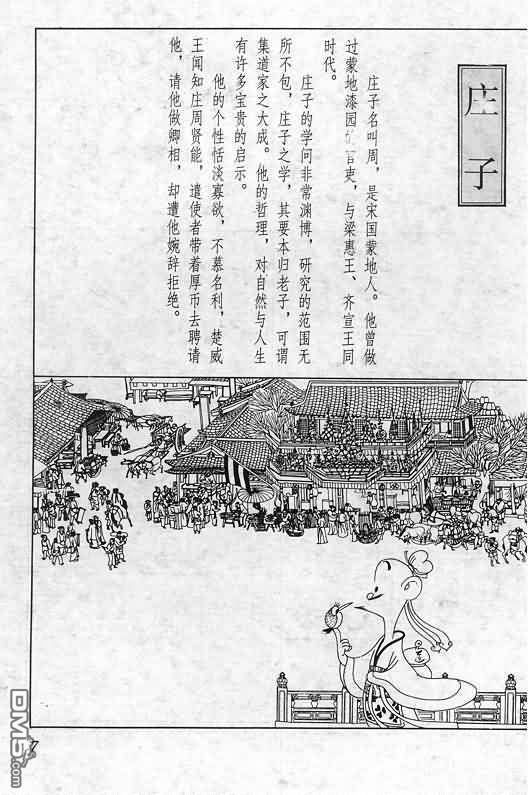 庄子
庄子名叫周，是宋国蒙地人。他曾做
过蒙地漆园 官吏，与梁惠王、齐宣王同
时代。
庄子的学问非常渊博，研究的范围无
所不包，庄子之学，其要本归老子，可谓
集道家之大成。他的哲理，对自然与人生
有许多宝贵的启示。
他的个性恬淡寡欲，不慕名利，楚威
王闻知庄周贤能，遣使者带着厚币去聘请
他，请他做卿相，却遭他婉辞拒绝。
7
DM5.com